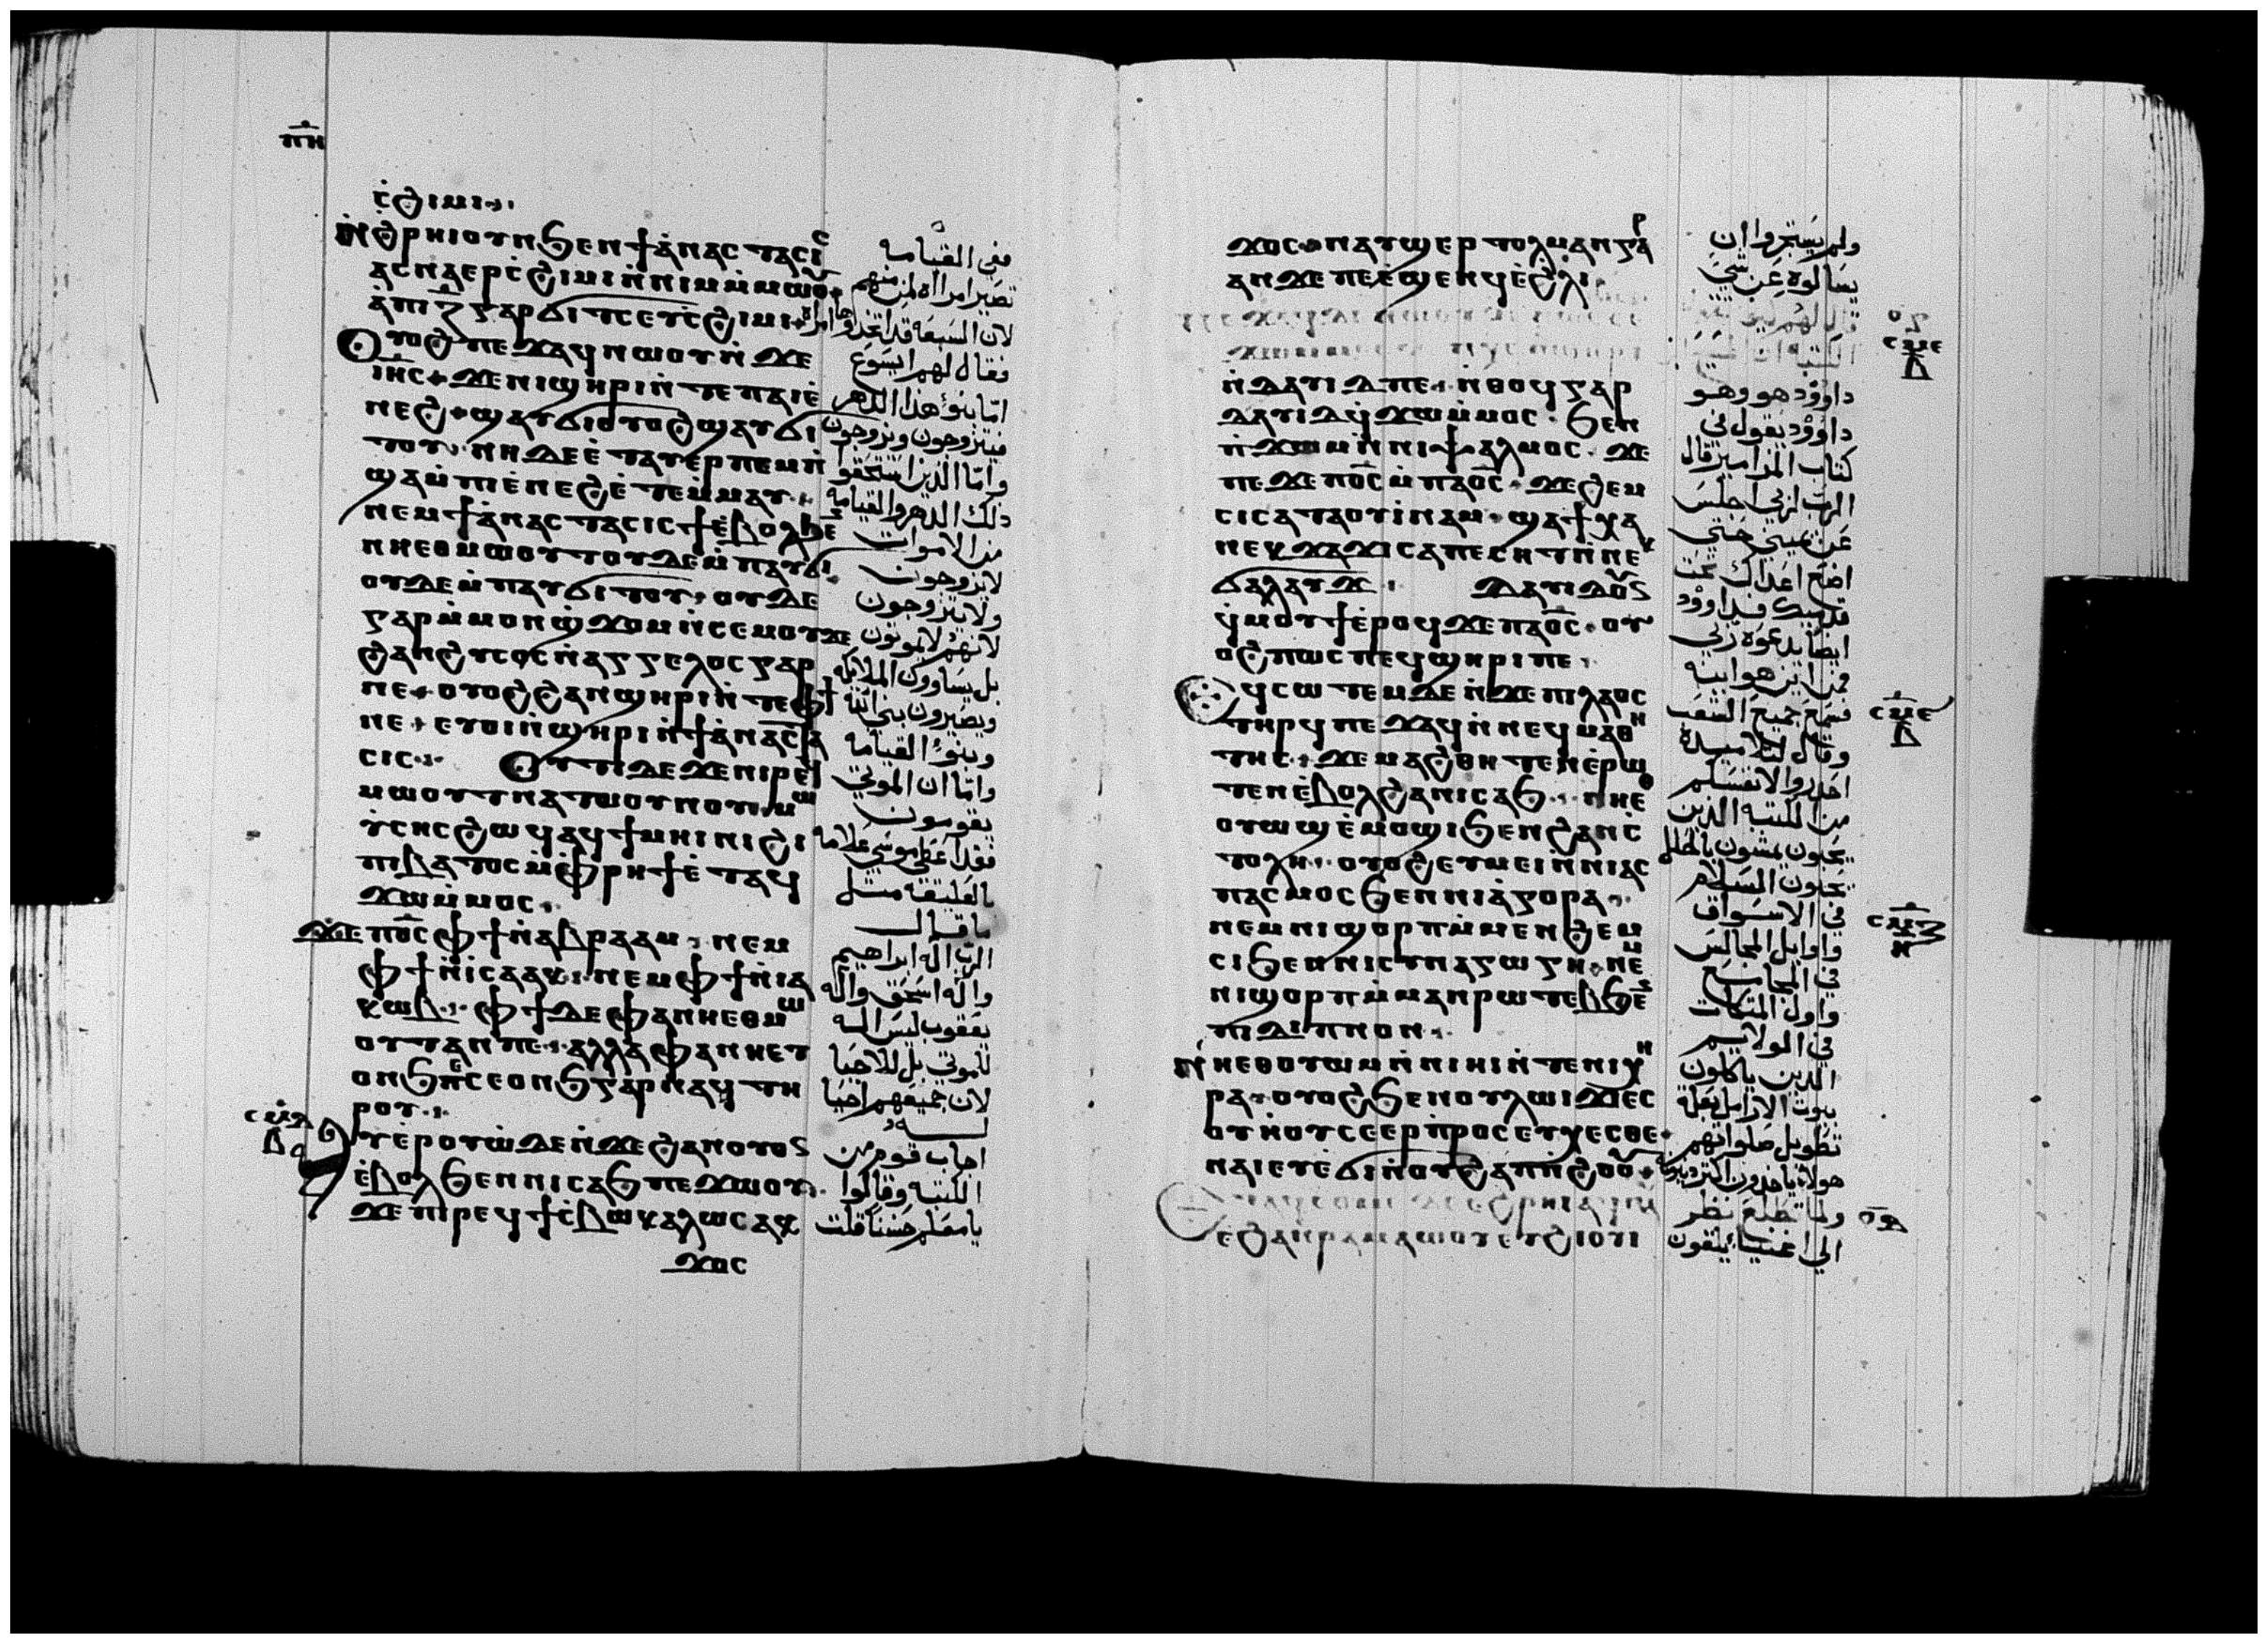 ⲡ̅ⲏ̅
ⲥ̇ϩⲓⲙⲓ
ⲛ̇ϩ̇ⲣⲏⲓⲟⲩⲛϧⲉⲛϯⲁ̇ⲛⲁⲥⲧⲁⲥⲓⲥ
ⲁⲥⲛⲁⲉⲣⲥ̇ϩⲓⲙⲓⲛ̇ⲛⲓⲙⲙ̇ⲙⲱⲟⲩ
ⲁ̇ⲡⲓⲍ̅ⲅⲁⲣϭⲓⲧⲥⲉⲩⲥϩⲓⲙⲓ
ⲟⲩⲟϩⲡⲉϫⲁϥⲛⲱⲟⲩⲛ̇ϫⲉ
ⲓⲏ̅ⲥ̅ ϫⲉⲛⲓϣⲏⲣⲓⲛ̇ⲧⲉⲡⲁⲓⲉ̇
ⲛⲉϩ ϣⲁⲩϭⲓⲟⲩⲟϩϣⲁⲩϭⲓ
ⲧⲟⲩ ⲛⲏⲇⲉⲉ̇ⲧⲁⲩⲉⲣⲡⲉⲙⲡ̇
ϣⲁⲙ̇ⲡⲓⲉ̇ⲛⲉϩⲉ̇ⲧⲉⲙ̇ⲙⲁⲩ
ⲛⲉⲙϯⲁ̇ⲛⲁⲥⲧⲁⲥⲓⲥϯⲉ̇ⲃⲟⲗϧⲉⲛ
ⲛⲏⲉⲑⲙⲱⲟⲩⲧⲟⲩⲇⲉⲙ̇ⲡⲁⲩϭⲓ
ⲟⲩⲇⲉⲙ̇ⲡⲁⲩϭⲓⲧⲟⲩ ⲟⲩⲇⲉ
ⲅⲁⲣⲙ̇ⲙⲟⲛϣ̇ϫⲟⲙⲛ̇ⲥⲉⲙⲟⲩϫⲉ
ϩⲁⲛϩⲩⲥⲟⲥⲛ̇ⲁⲅⲅⲉⲗⲟⲥⲅⲁⲣ
ⲛⲉ ⲟⲩⲟϩϩⲁⲛϣⲏⲣⲓⲛ̇ⲧⲉⲫϯ
ⲛⲉ ⲉⲩⲟⲓⲛ̇ϣⲏⲣⲓⲛ̇ϯⲁ̇ⲛⲁⲥⲧⲁ
ⲥⲓⲥ ⲟⲧⲓⲇⲉϫⲉⲛⲓⲣⲉϥ
ⲙⲱⲟⲩⲧⲛⲁⲧⲱⲟⲩⲛⲟⲩ ⲙⲱ
ⲩ̇ⲥⲏⲥϩⲱϥⲁϥϯⲙⲏⲓⲛⲓϩⲓ
ⲡⲓⲃⲁⲧⲟⲥⲙ̇ⲫⲣⲏϯⲉ̇ⲧⲁϥ
ϫⲱⲙ̇ⲙⲟⲥ
ϫⲉⲡⲟ̅ⲥ̅ⲫϯⲛ̇ⲁⲃⲣⲁⲁⲙ ⲛⲉⲙ
ⲫϯⲛ̇ⲓⲥⲁⲁⲕ ⲛⲉⲙⲫϯⲛ̇ⲓⲁ
ⲕⲱⲃ ⲫϯⲇⲉⲫⲁⲛⲏⲉⲑⲙⲱ
ⲟⲩⲧⲁⲛⲡⲉ ⲁⲗⲗⲁⲫⲁⲛⲏⲉⲧ
ⲟⲛϧⲡⲉⲥⲉⲟⲛϧⲅⲁⲣⲛⲁϥⲧⲏ
ⲣⲟⲩ
ⲩⲉ̇ⲣⲟⲩⲱ̇ⲇⲉⲛ̇ϫⲉϩⲁⲛⲟⲩⲟⲛ
ⲉ̇ⲃⲟⲗϧⲉⲛⲛⲓⲥⲁϧⲡⲉϫⲱⲟⲩ
ϫⲉⲡⲓⲣⲉϥϯⲥ̇ⲃⲱⲕⲁⲗⲱⲥⲁⲕ
ϫⲟⲥ
ففي القيامه
تصير امراه لمن منهم
لان السبعه قد اتخدوها امراه
فقال لهم ايسوع
امّا بنو هذا الدهر
فيتزوجون ويزوجون
وامّا الذين استحقوا
ذلك الدهر والقيامه
من الاموات
لا يزوجون
ولا يتزوجون
لانهم لا يموتون
بل يساوون الملايكه
ويصيرون بني الله
وبنو القيامه
وامّا ان الموتي
يقومون
فقد اعطي موسي علامه
بالعليقه مثل
ما قال
الرب اله ابراهيم
واله اسحق واله
يعقوب ليس اله
للموتي بل للاحيا
لان جميعهم احيا
له
اجاب قوم من
الكتبه وقالوا
يا معلم حسنًا قلت
ϫⲟⲥ ⲛⲁⲩϣⲉⲣⲧⲟⲗⲙⲁⲛⲅⲁⲣ
ⲁⲛϫⲉⲡⲉⲉ̇ϣⲉⲛϥⲉ̇ϩⲗⲓ
ⲛ̇ⲇⲁⲩⲓⲇⲡⲉ ⲛ̇ⲑⲟϥⲅⲁⲣ
ⲇⲁⲩⲓⲇϥ̇ϫⲱⲙ̇ⲙⲟⲥ ϧⲉⲛ
ⲡ̇ϫⲱⲙⲛ̇ⲛⲓⲯⲁⲗⲙⲟⲥ ϫⲉ
ⲡⲉϫⲉⲡⲟ̅ⲥ̅ⲙ̇ⲡⲁⲟ̅ⲥ̅ ϫⲉϩⲉⲙ
ⲥⲓⲥⲁⲧⲁⲟⲩⲓ̇ⲛⲁⲙ ϣⲁϯⲭⲁ
ⲛⲉⲕϫⲁϫⲓⲥⲁⲡⲉⲥⲏⲧⲛ̇ⲛⲉⲕ
ϭⲁⲗⲁⲩϫ ⲇⲁⲩⲓⲇⲟⲩⲛ
ϥ̇ⲙⲟⲩϯⲉ̇ⲣⲟϥϫⲉⲡⲁⲟ̅ⲥ̅ ⲟⲩ
ⲟϩⲡⲱⲥⲡⲉϥϣⲏⲣⲓⲡⲉ
ϥⲥⲱⲧⲉⲙⲇⲉⲛ̇ϫⲉⲡⲓⲗⲁⲟⲥ
ⲧⲏⲣϥⲡⲉϫⲁϥⲛ̇ⲛⲉϥⲙⲁⲑⲏ
ⲧⲏⲥ ϫⲉⲙⲁϩⲑⲏⲧⲉⲛⲉ̇ⲣⲱ
ⲧⲉⲛⲉ̇ⲃⲟⲗϩⲁⲛⲓⲥⲁϧ ⲛⲏⲉⲑ
ⲟⲩⲱϣⲉ̇ⲙⲟϣⲓϧⲉⲛϩⲁⲛⲥ̇
ⲧⲟⲗⲏ ⲟⲩⲟϩⲉⲩⲙⲉⲓⲛ̇ⲛⲓⲁⲥ
ⲡⲁⲥⲙⲟⲥϧⲉⲛⲛⲓⲁ̇ⲅⲟⲣⲁ
ⲛⲉⲙⲛⲓϣⲟⲣⲡⲙ̇ⲙⲉⲛϩⲉⲙ
ⲥⲓϧⲉⲛⲛⲓⲥⲩⲛⲁⲅⲱⲅⲏ ⲛⲉⲙ
ⲛⲓϣⲟⲣⲡⲙ̇ⲙⲁⲛⲣⲱⲧⲉⲃϧⲉⲛ
ⲡⲓⲇⲓⲡⲛⲟⲛ
ⲛ̇ⲏⲉⲑⲟⲩⲱⲙⲛ̇ⲛⲓⲏⲓⲛ̇ⲧⲉⲛⲓⲭⲏ
ⲣⲁ ⲟⲩⲟϩϧⲉⲛⲟⲩⲗⲱⲓϫⲓⲉⲥ
ⲟⲩⲛ̇ⲟⲩⲥⲉⲉⲣⲡ̇ⲣⲟⲥⲉⲩⲭⲉⲥⲑⲉ
ⲛⲁⲓⲉⲩⲉ̇ϭⲓⲛ̇ⲟⲩϩⲁⲡⲛ̇ϩⲟⲩⲟ
ⲉϩⲁⲛⲣⲁⲙⲁⲱⲟⲩⲉⲩϩⲓⲟⲩⲓ
ولم يستجروا ان
يسالوه عن شي
قال لهم
داوود هو وهو
داوود يقول في
كتاب المزامير قال
الرب لربي اجلس
عن يميني حتي
اضع اعداك تحت
قدميك فداوود
ايضا يدعوه ربي
فمن اين هو ابنه
فسمع جميع الشعب
وقال لتلاميده
احدروا لانفسكم
من الكتبه الذين
يحبون يمشون بالحلل
يحبون السلام
في الاسواق
واوايل المجالس
في المجامع
واول المتكات
في الولايم
الذين ياكلون
بيوت الارامل بعلة
تطويل صلواتهم
هولاء ياخدون اكثر دينونه
ولما تطلع نظر
الي اغنيا يلقون